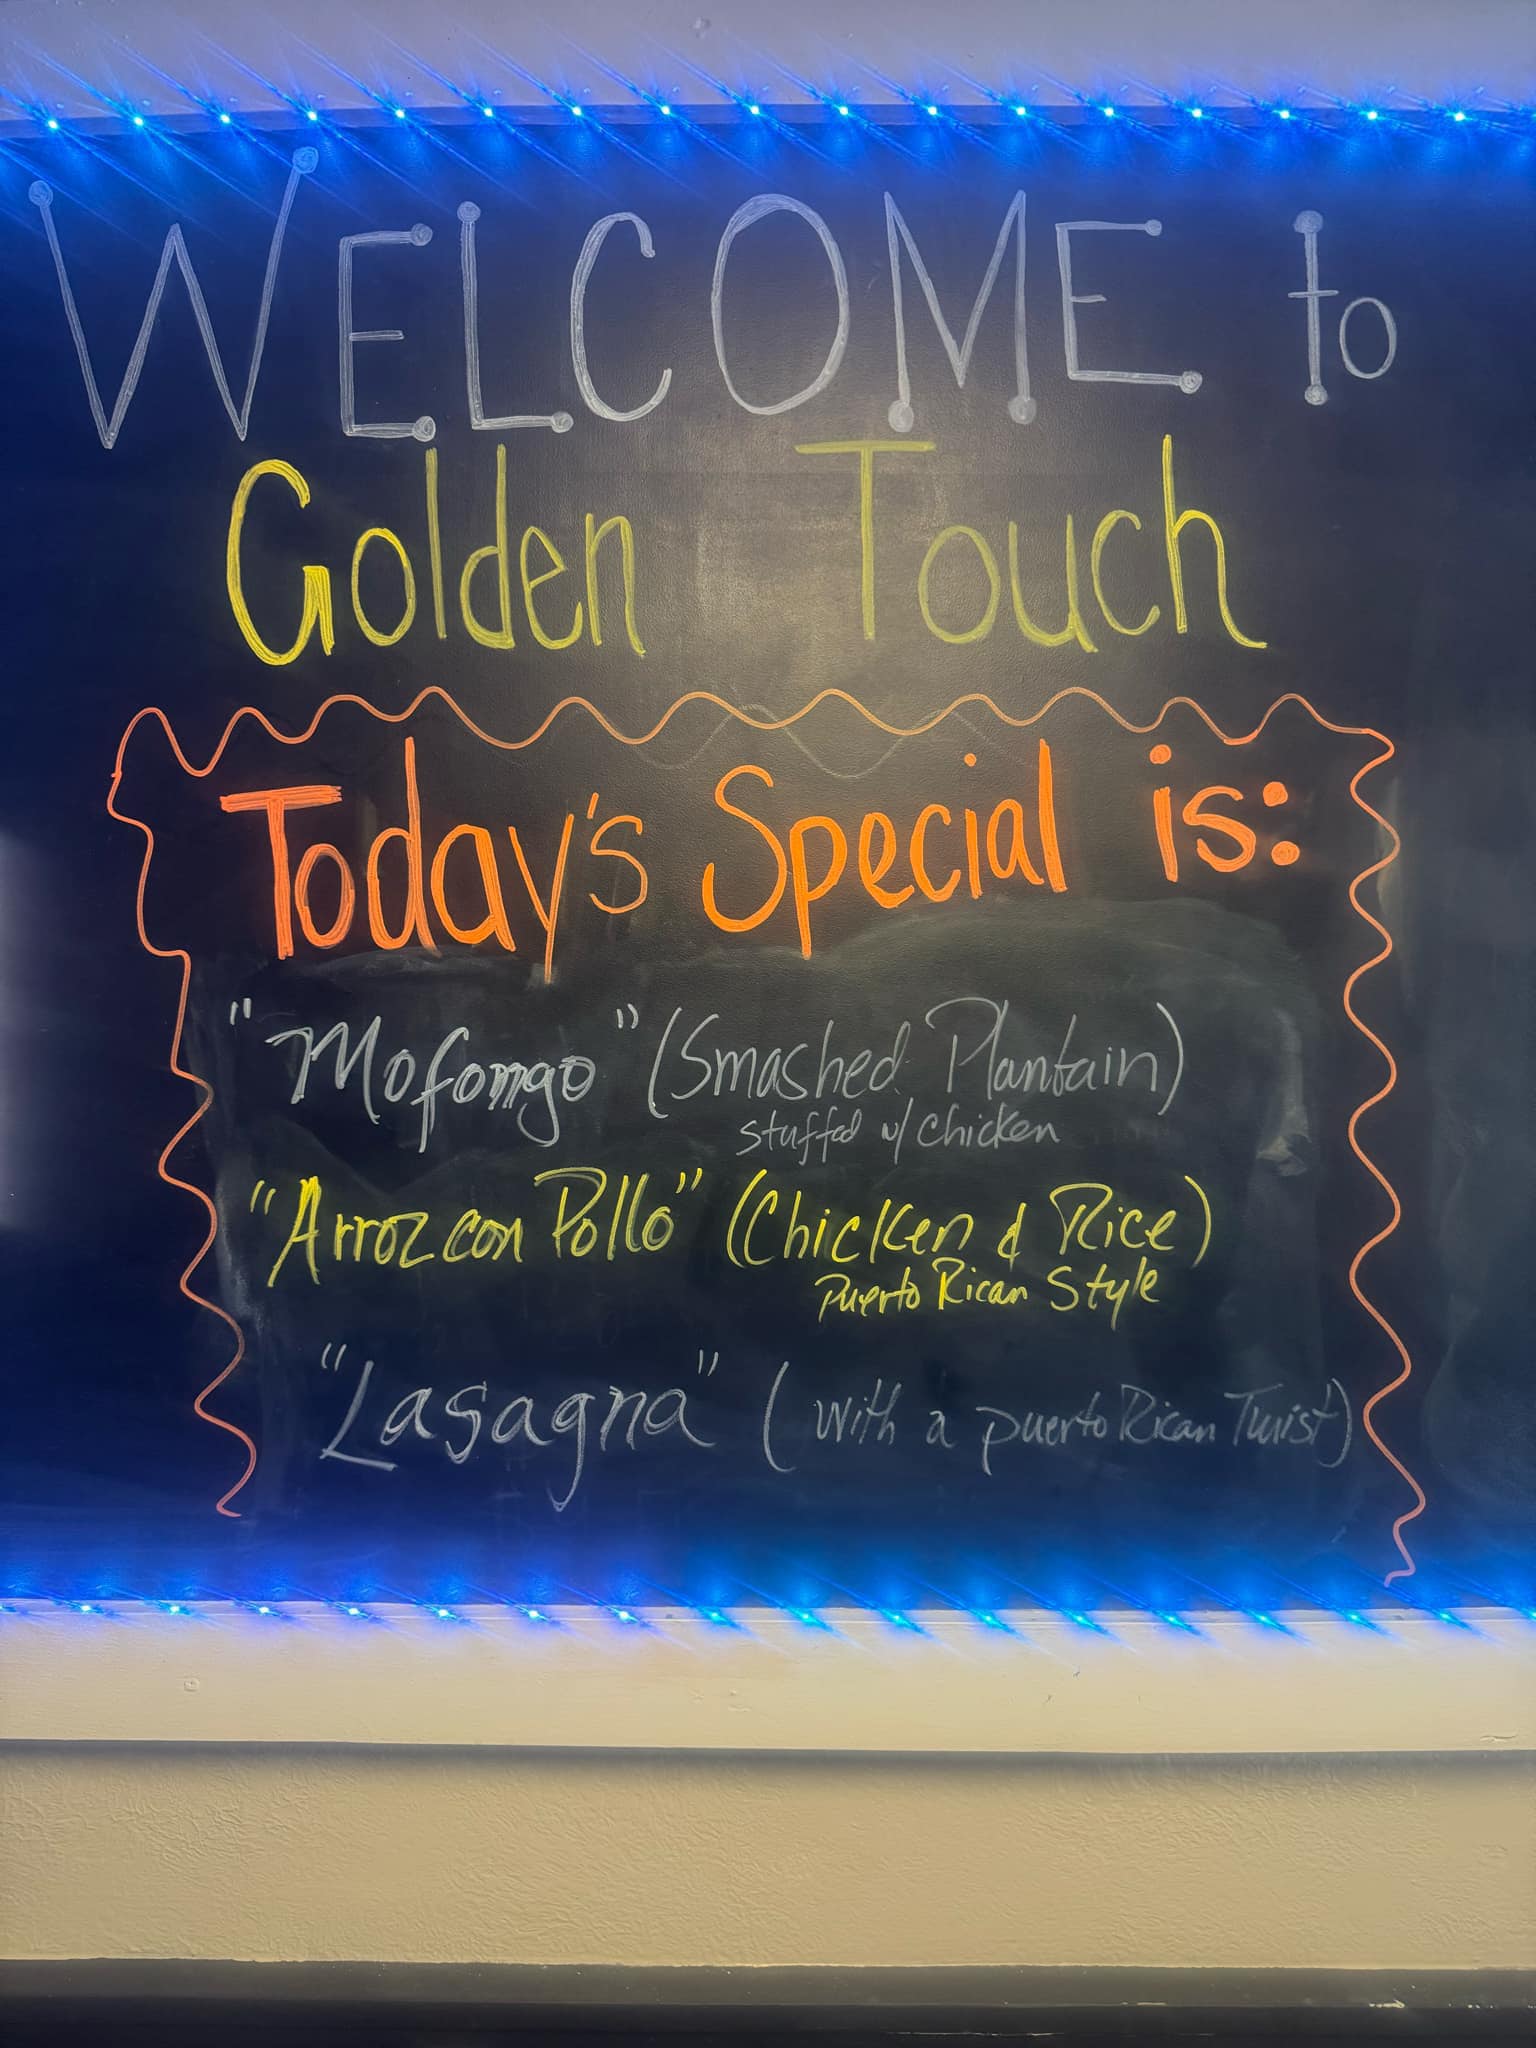 WELCOME to
Golden Touch
Today's Special is:
"Mofongo" (Smashed Plantain)
stuffed w/ chicken
"Arroz con Pollo" (Chicken & Rice)
Puerto Rican Style
"Lasagna" (with a puerto Rican Twist)